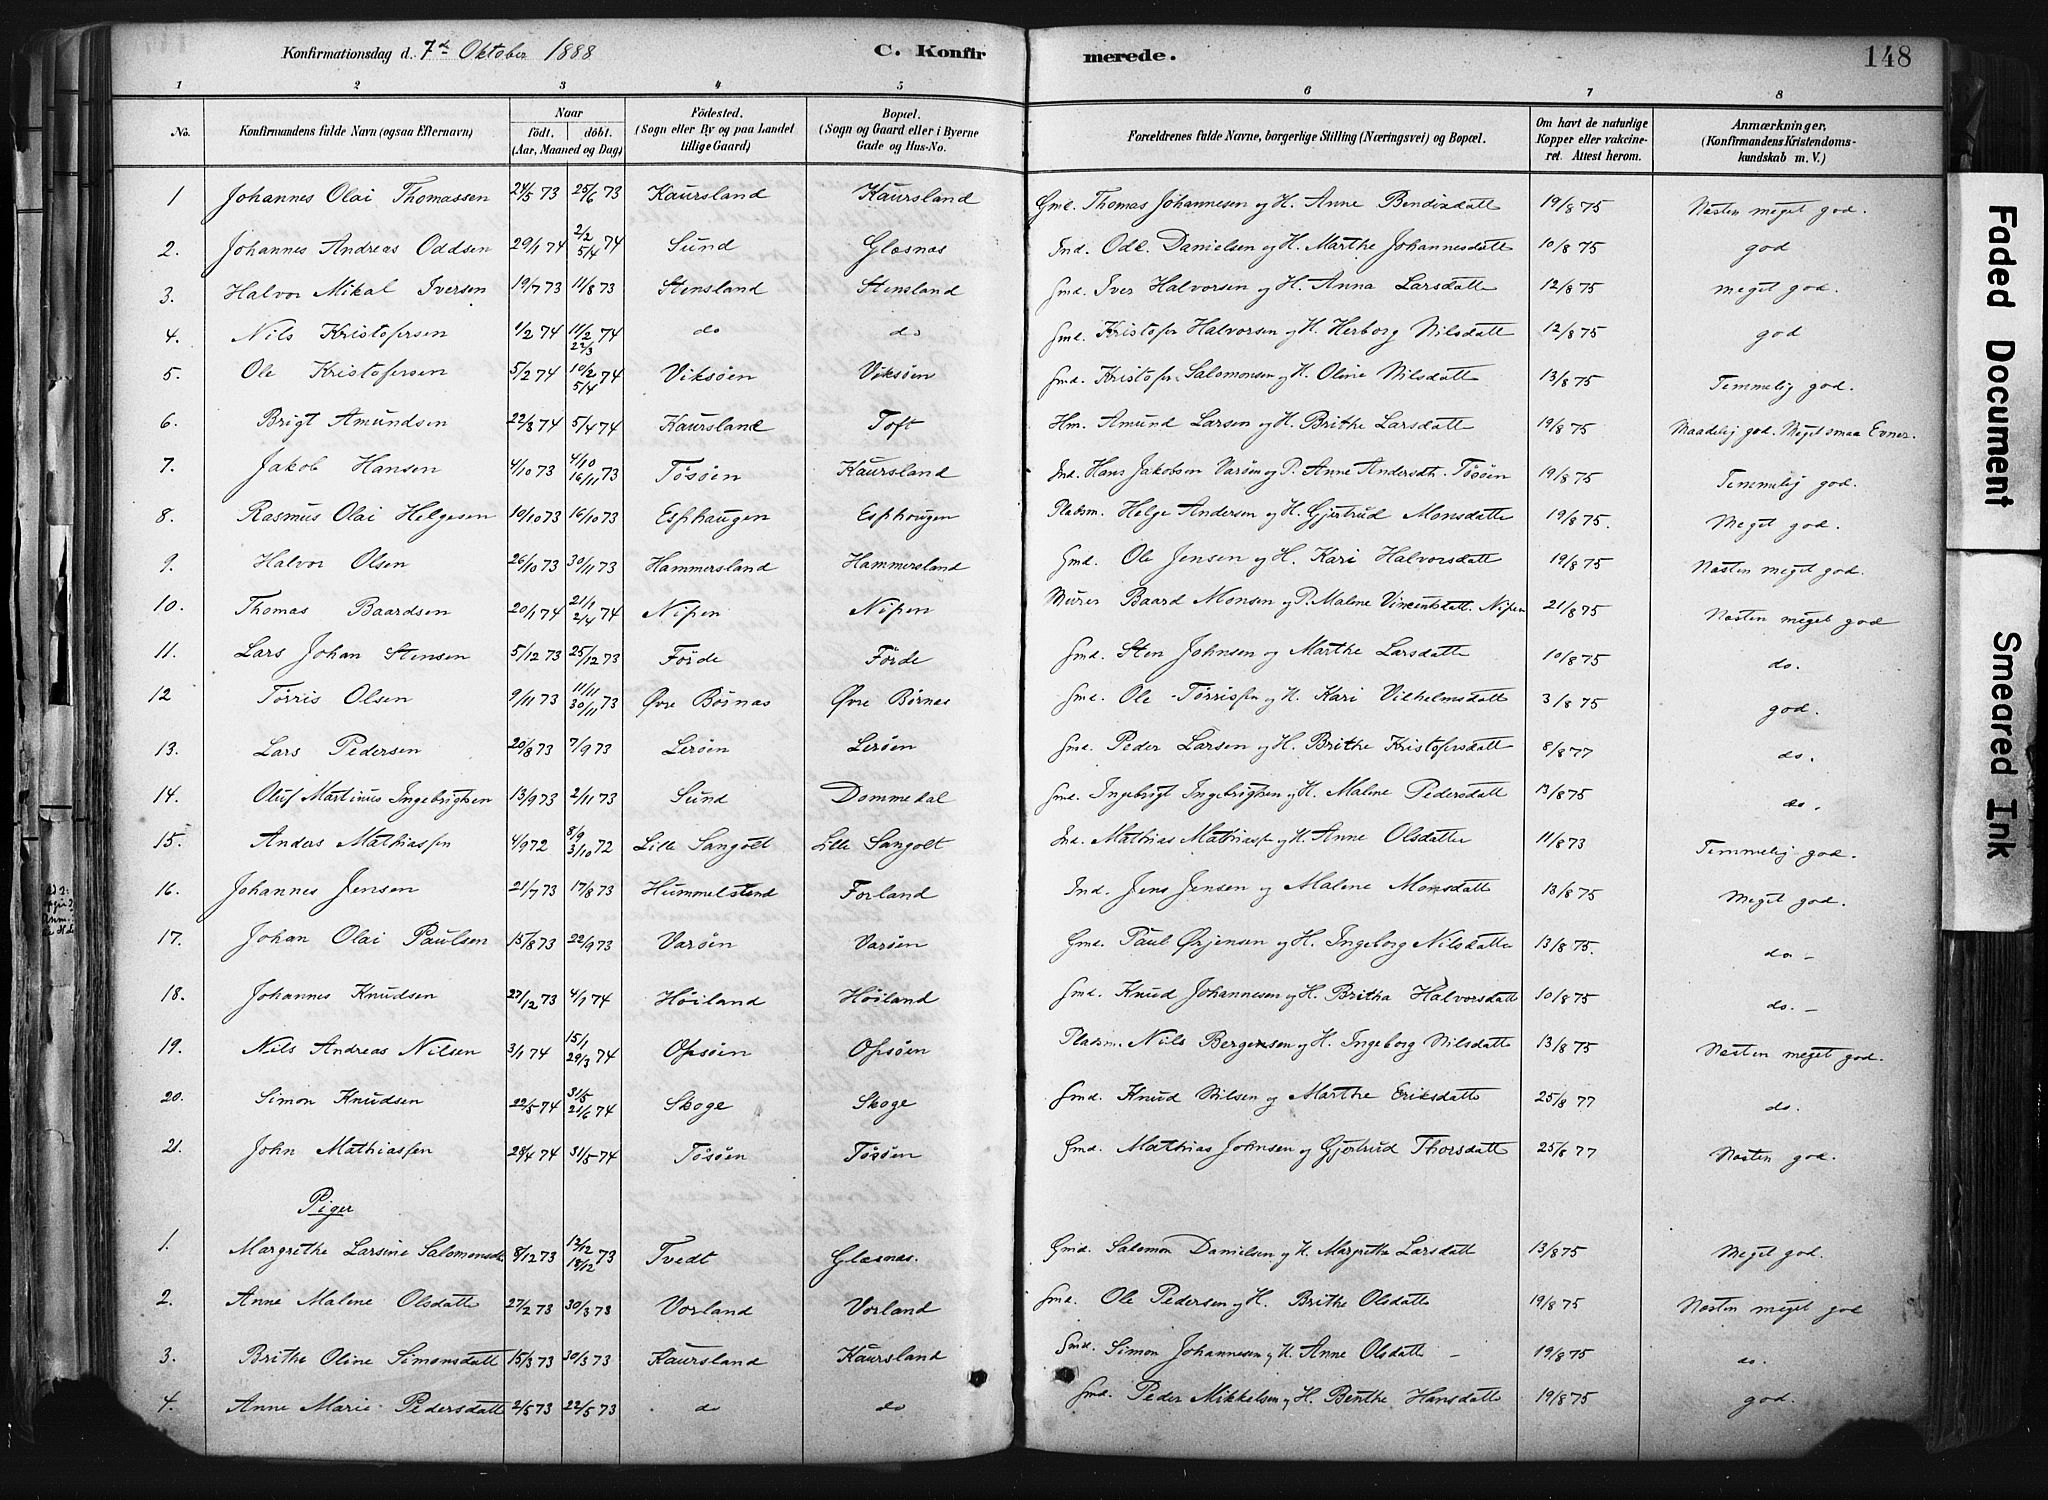 Konfirmationsdag d. 7de Oktober 1888 C. Konfirmerede. 148
1 2 3 4 5 6 7 8
No. Konfirmandens fulde Navn (ogsaa Efternavn) Naar födt. döbt. (Aar, Maaned og Dag) Födested. (Sogn eller By og paa Landet tillige Gaard) Bopæl. (Sogn og Gaard eller i Byerne Gade og Hus-No. Forældrenes fulde Navne, borgerlige Stilling (Næringsvei) og Bopæl. Om havt de naturlige Kopper eller vakcineret. Attest herom. Anmærkninger, (Konfirmandens Kristendomskundskab m. V.)
1 Johannes Olai Thomassen 24/5 73 25/6 73 Kaursland Kaursland Gmd. Thomas Johannesen og H. Anne Bendixdatt 19/8 75 Næsten meget god.
2. Johannes Andreas Oddsen 29/1 74 2/2 5/4 74 Sund Glæsnæs Ind. Odd. Danielsen og H. Marthe Johannesdatt 10/8 75 god
3. Halvor Mikal Iversen 19/7 73 11/8 73 Stensland Stensland Gmd. Iver Halvorsen og H. Anna Larsdatt 12/8 75 meget god.
4. Nils Kristofersen 1/2 74 11/2 22/3 74 do do Gmd. Kristofer Halvorsen og H. Herborg Nilsdatt 12/8 75 god
5. Ole Kristofersen 5/2 74 10/2 5/4 74 Viksöen Viksöen Gmd. Kristofer Salomonsen og H. Oline Nilsdatt 13/8 75 Temmelig god.
6. Brigt Amundsen 22/3 74 5/4 74 Kaursland Toft Hm. Amund Larsen og H. Brithe Larsdatt 19/8 75 Maadelig god. Meget smaa Evner.
7. Jakob Hansen 4/10 73 4/10 16/11 73 Tösöen Kaursland Ind. Hans Jakobsen Varöen og P. Anne Andersdt. Tösöen 19/8 75 Temmelig god.
8. Rasmus Olai Helgesen 10/10 73 16/10 73 Esphaugen Esphougen Pladsm. Helge Andersen og H. Gjertrud Monsdatt 19/8 75. Meget god.
9. Halvor Olsen 26/10 73 30/11 73 Hammersland Hammersland Gmd. Ole Jensen og H. Kari Halvorsdatt 19/8 75 Næsten meget god.
10. Thomas Baardsen 20/1 74 21/1 2/4 74 Nipen Nipen Murer Baard Monsen og P. Malene Vincentsdatt. Nipen 21/8 75 Næsten meget god
11. Lars Johan Stensen 5/12 73 25/12 73 Förde Förde Gmd. Sten Johnsen og Marthe Larsdatte 10/8 75 do.
12 Törris Olsen 9/11 73 11/11 30/11 73 Øvre Börnæs Øvre Börnes Gmd. Ole Törrissen og H. Kari Vilhelmsdatt 3/8 75 god.
13. Lars Pedersen 20/8 73 7/9 73 Leröen Leröen Gmd. Peder Larsen og H. Brithe Kristofersdatt 8/8 77 do.
14. Oluf Martinus Ingebrigtsen 13/9 73 2/11 73 Sund Dommedal Gmd. Ingebrigt Ingebrigtsen og H. Malene Pedersdatt 13/8 75 do.
15. Anders Mathiassen 4/9 72 8/9 3/10 72 Lille Sangolt Lille Sangolt Ind. Mathias Mathiassen og H. Anne Olsdatte 11/8 73 Temmelig god.
16. Johannes Jensen 21/7 73 17/8 73 Hummelsund Forland Ind. Jens Jensen og Malene Monsdatte 13/8 75 Meget god.
17. Johan Olai Paulsen 15/8 73 22/9 73 Varöen Varöen Gmd. Paul Örjensen og H. Ingeborg Nilsdatte 13/8 75. do -
18. Johannes Knudsen 27/12 73 4/1 74 Höiland Höiland Gmd. Knud Johannesen og H. Britha Halvorsdatt 10/8 75 do. -
19. Nils Andreas Nilsen 3/1 74 15/1 29/3 74 Opsöen Opsöen Pladsm. Nils Bergensen og H. Ingeborg Nilsdatt 13/8 75 Næsten meget god.
20. Simon Knudsen 22/5 74 31/5 21/6 74 Skoge Skoge Gmd. Knud Nilsen og Marthe Eriksdatt 25/8 77 do.
21. John Mathiassen 28/4 74 31/5 74 Tösöen Tösöen Gmd. Mathias Johnsen og Gjertrud Thorsdatt 25/8 77 Næsten god.
Piger
1. Margrethe Larsine Salomonsdt 8/12 73 12/12 18/12 73 Tvedt Glæsnæs. Gmd. Salomon Danielsen og H. Margrethe Larsdatt 13/8 75 Meget god.
2. Anne Malene Olsdatte 27/2 73 30/3 73 Vorland Vorland Gmd. Ole Pedersen og H. Brithe Olsdatte 19/8 75 Næsten meget god
3. Brithe Oline Simonsdatt 15/3 73 30/3 73 Kaursland Kaursland Gmd. Simon Johannesen og H. Anne Olsdatte - 19/8 75 do.
4. Anne Marie Pedersdatt 2/5 73 22/5 73 do do Gmd. Peder Mikkelsen og H. Benthe Hansdatte 19/8 75 god.
Faded Document
Smeared Ink